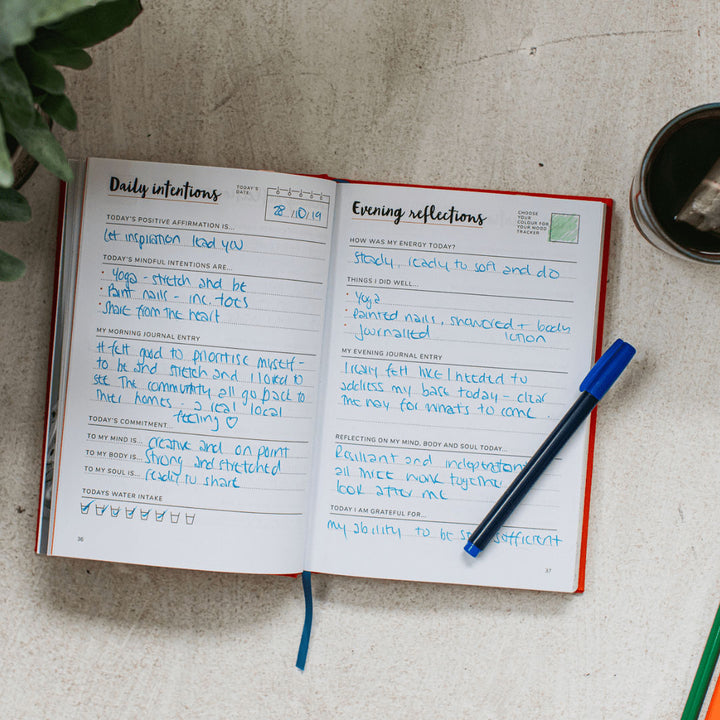 Daily intentions
TODAY'S
DATE:
28 /10 /19
TODAY'S POSITIVE AFFIRMATION IS...
Let inspiration lead you
TODAY'S MINDFUL INTENTIONS ARE...
• Yoga - stretch and be
• Paint nails - inc. toes
• Share from the heart
MY MORNING JOURNAL ENTRY
It felt good to prioritise myself -
to be and stretch and I loved to
see the community all go back to
their homes - a real local
feeling ♡
TODAY'S COMMITMENT...
TO MY MIND IS... creative and on point
TO MY BODY IS... strong and stretched
TO MY SOUL IS... ready to share
TODAYS WATER INTAKE
36
Evening reflections
CHOOSE
YOUR
COLOUR FOR
YOUR MOOD
TRACKER
HOW WAS MY ENERGY TODAY?
steady, ready to soft and do
THINGS I DID WELL...
• Yoga
• Painted nails, showered + body
lotion
• journalled
MY EVENING JOURNAL ENTRY
I really felt like I needed to
address my base today - clear
the way for whats to come.
REFLECTING ON MY MIND, BODY AND SOUL TODAY...
Resiliant and independant
all three work together
look after me
TODAY I AM GRATEFUL FOR...
my ability to be sufficient
37